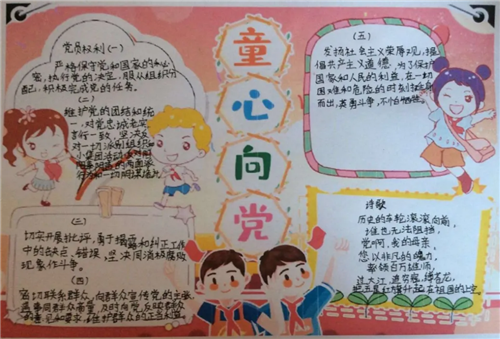 童心向党
党员权利(一)
严格保守党和国家的秘
密,执行党的决定,服从组织分
配,积极完成党的任务。
(二)
维护党的团结和统
一,对党忠诚老实
言行一致,坚决反
对一切派别组织和
小集团活动,反对阳
奉阴违的两面派
行为和一切阴谋诡计
(三)
切实开展批评,勇于揭露和纠正工作
中的缺点、错误,坚决同消极腐败
现象作斗争。
(四)
密切联系群众,向群众宣传党的主张
遇事同群众商量,及时向党反映群众
的意见和要求,维护群众的正当利益
(五)
发扬社会主义荣辱观,提
倡共产主义道德,为了保护
国家和人民的利益,在一切
困难和危险的时刻挺身
而出,英勇斗争,不怕牺牲。
诗歌
历史的车轮滚滚向前,
谁也无法阻挡,
党啊,我的母亲,
您以非凡的魄力,
率领百万雄师,
过大江
把五星红旗升起在祖国的上空。